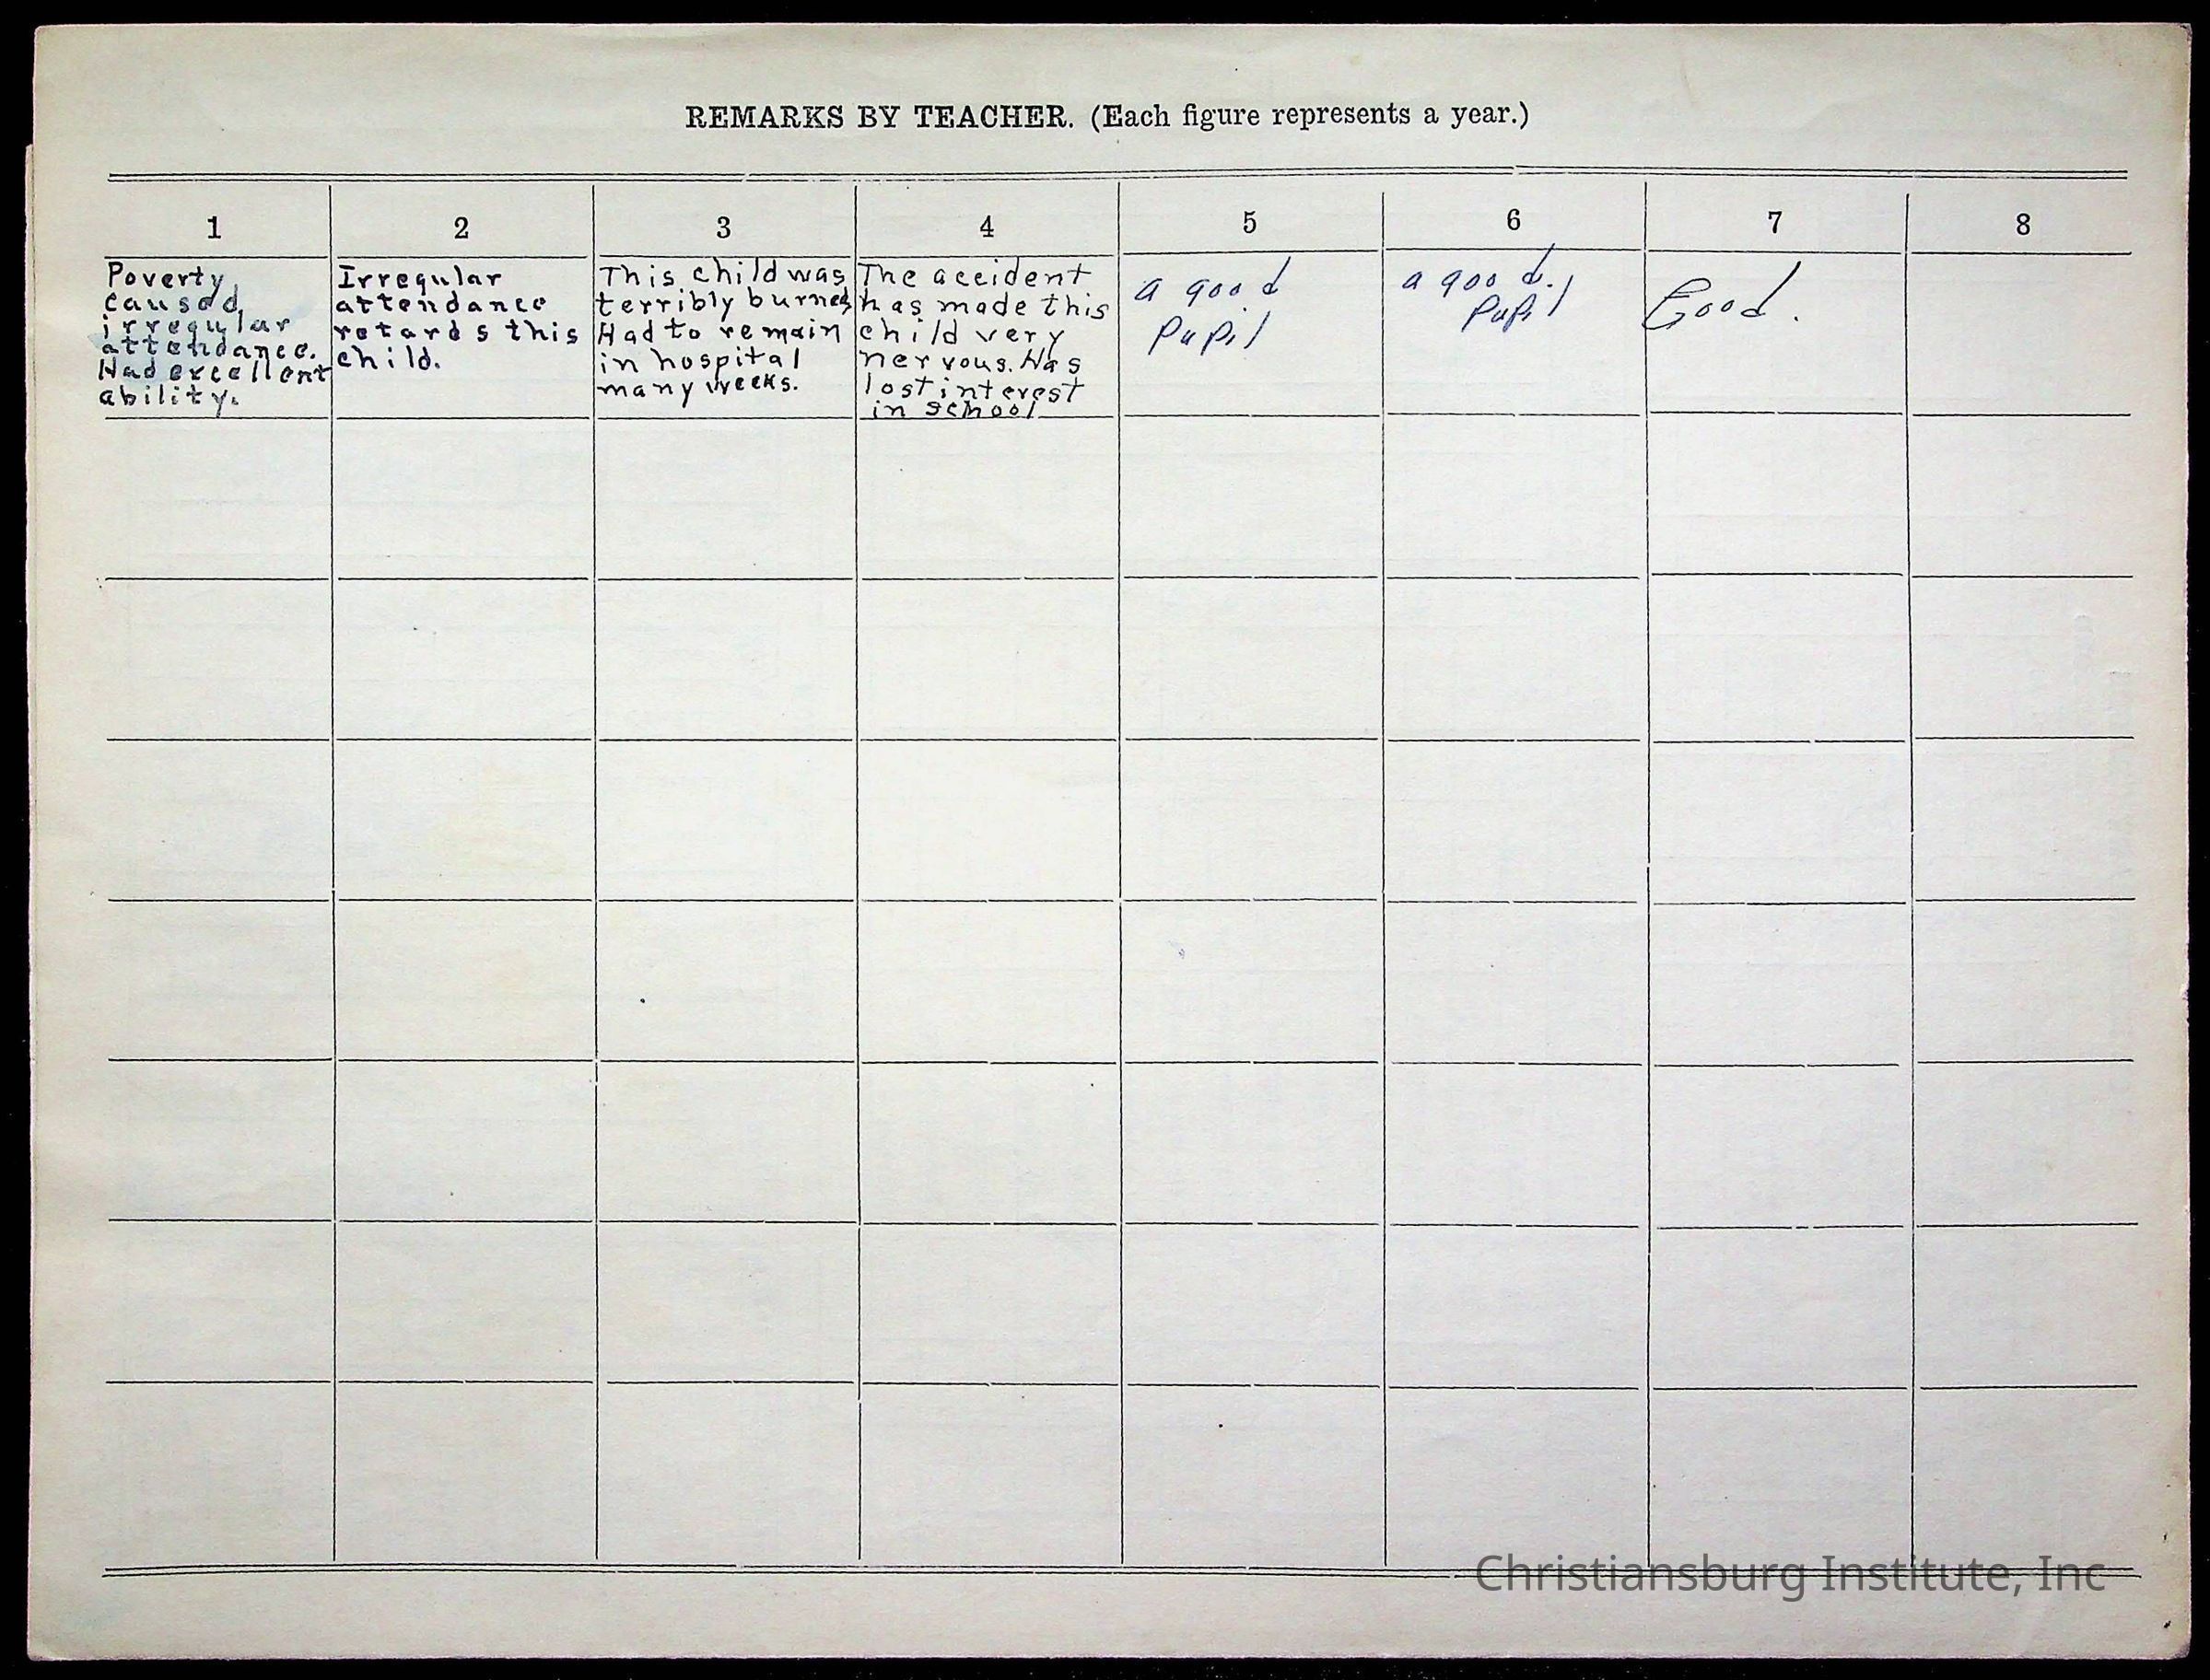 REMARKS BY TEACHER. (Each figure represents a year.)
1
2
3
4
5
6
7
8
Poverty
caused
irregular
attendance.
Had excellent
ability.
Irregular
attendance
retards this
child.
This child was
terribly burned,
Had to remain
in hospital
many weeks.
The accident
has made this
child very
nervous. Has
lost interest
in school
a good
Pupil
a good.
Pupil
Good.
Christiansburg Institute, Inc